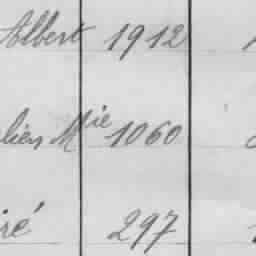 Albert 1912
Mie 1060
ré 297